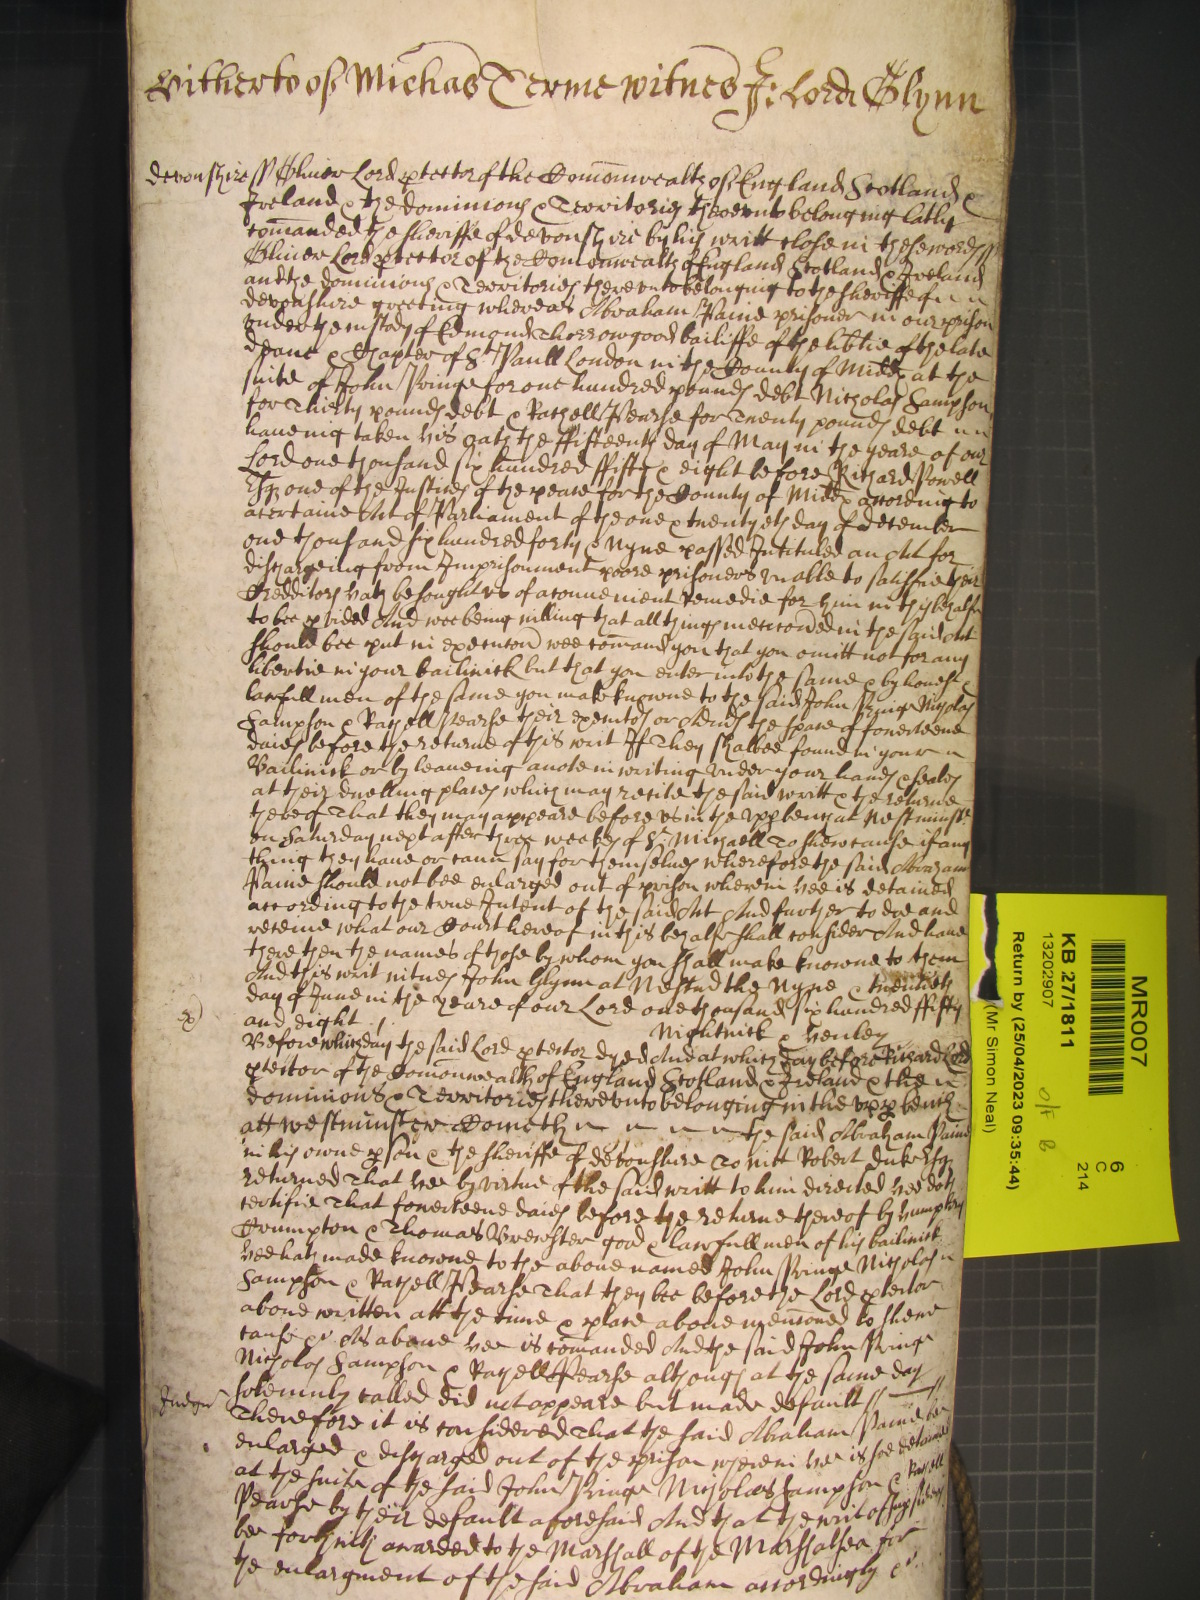 Hitherto of Michas Terme witnes J: Lord Glynn
devonshire ss Oliver Lord ptector of the Comonwealth of England Scotland &
Ireland & the dominions & Territories thereunto belonging lately
comanded the sheriffe of devonshire by his writt close in these words ss
Oliver Lord ptector of the Comonwealth of England Scotland & Ireland
and the dominions & Territories thereunto belonging to the sheriffe of
devonshire greeting whereas Abraham Paine prisoner in our prison
under the custody of Edmond Therrowgood bailiffe of the libtie of the late
deane & Chapter of St Paull London in the County of Midd at the
suite of John Pringe for one hundred pounds debt Nicholas Sampson
for Thirty pounds debt & Rachell Pearse for Twenty pounds debt
haveing taken his oath the ffifteenth day of May in the yeare of our
Lord one thousand six hundred ffifty & eight before Richard Powell
Esq one of the Justices of the peace for the County of Midd according to
a certaine Act of Parliament of the one & twentyeth day of december
one thousand six hundred forty & Nyne passed Intituled an Act for
dischargeing from Imprisonment poore prisoners unable to satisfie their
Creditors hath besought us of a convenient remedie for him in this behalfe
to bee pvided And wee being willing that all things menconed in the said Act
should bee put in execucon wee comand you that you omitt not for any
libertie in your bailiwick but that you enter into the same & by honest &
lawfull men of the same you make knowne to the said John Pringe Nicholas
Sampson & Rachell Pearse their executors or Admrs the space of fowerteene
daies before the returne of this writ If They shalbee found in your
Bailiwick or by leaveing a note in writing under your hands & seales
at their dwelling places which may recite the said writt & the returne
thereof That they may appeare before us in the upp bench at Westminster
on Saturday next after three weekes of St Michaell To shew cause if any
thing they have or cann say for themselves wherefore the said Abraham
Paine should not bee enlarged out of prison wherein hee is detained
according to the true Intent of the said Act And further to doe and
receive what our Court hereof in this behalfe shall consider And have
there then the names of those by whom you shall make knowne to them
And this writ witnes John Glynn at Westmr the Nyne & twentieth
day of June in the yeare of our Lord one thousand six hundred ffifty
and eight
Wightwick & Henley
Before which day the said Lord ptector dyed And at which day before Richard Lord
ptector of the Comonwealth of England Scotland & Ireland & the
dominions & Territories thereunto belonging in the upp bench
att westminster Cometh the said Abraham Paine
in his owne pson & the sheriffe of devonshire To witt Robert Duke Esq
returned That hee by virtue of the said writt to him directed hee doth
certifie That fowerteene daies before the returne thereof by Humphry
Crumpton & Thomas Brewster good & lawfull men of his bailiwick
hee hath made knowne to the above named John Pringe Nicholas
Sampson & Rachell Pearse That they bee before the Lord ptector
above written att the time & place above menconed to shewe
cause &c As above hee is comanded And the said John Pringe
Nicholas Sampson & Rachell Pearse although at the same day
solemnly called did not appeare but made default
Judgt Therefore it is considered That the said Abraham Paine bee
enlarged & discharged out of the prison wherein hee is soe detained
at the suite of the said John Pringe Nicholas Sampson & Rachell
Pearse by their default aforesaid And that the writ of Supsedeas
be forthwith awarded to the Marshall of the Marshalsea for
the enlargment of the said Abraham accordingly &c
MR007
6
C
214
KB 27/1811
13202907
Return by (25/04/2023 09:35:44)
(Mr Simon Neal)